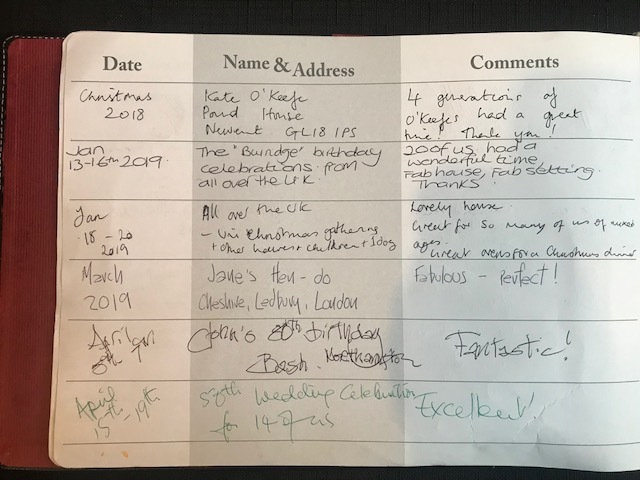 Date
Name & Address
Comments
Christmas
2018
Kate O'Keefe
Pound House
Newent GL18 1PS
4 generations of
O'Keefes had a great
time! Thank you!
Jan
13-16th 2019
The "Burridge" birthday
celebrations from
all over the U.K.
20 of us had a
wonderful time,
Fab house, Fab setting.
Thanks.
Jan
18 - 20
2019
All over the UK
- Uni Christmas gathering
+ children + 1 dog
Lovely house.
Great for so many of us of mixed
ages.
Great ovens for a Christmas dinner
March
2019
Jane's Hen - do
Cheshire, Ledbury, London
Fabulous - Perfect!
April
8th
John's 80th birthday
Bash. Northampton
Fantastic!
April
15th - 19th
50th Wedding Celebration
for 14 of us
Excellent!